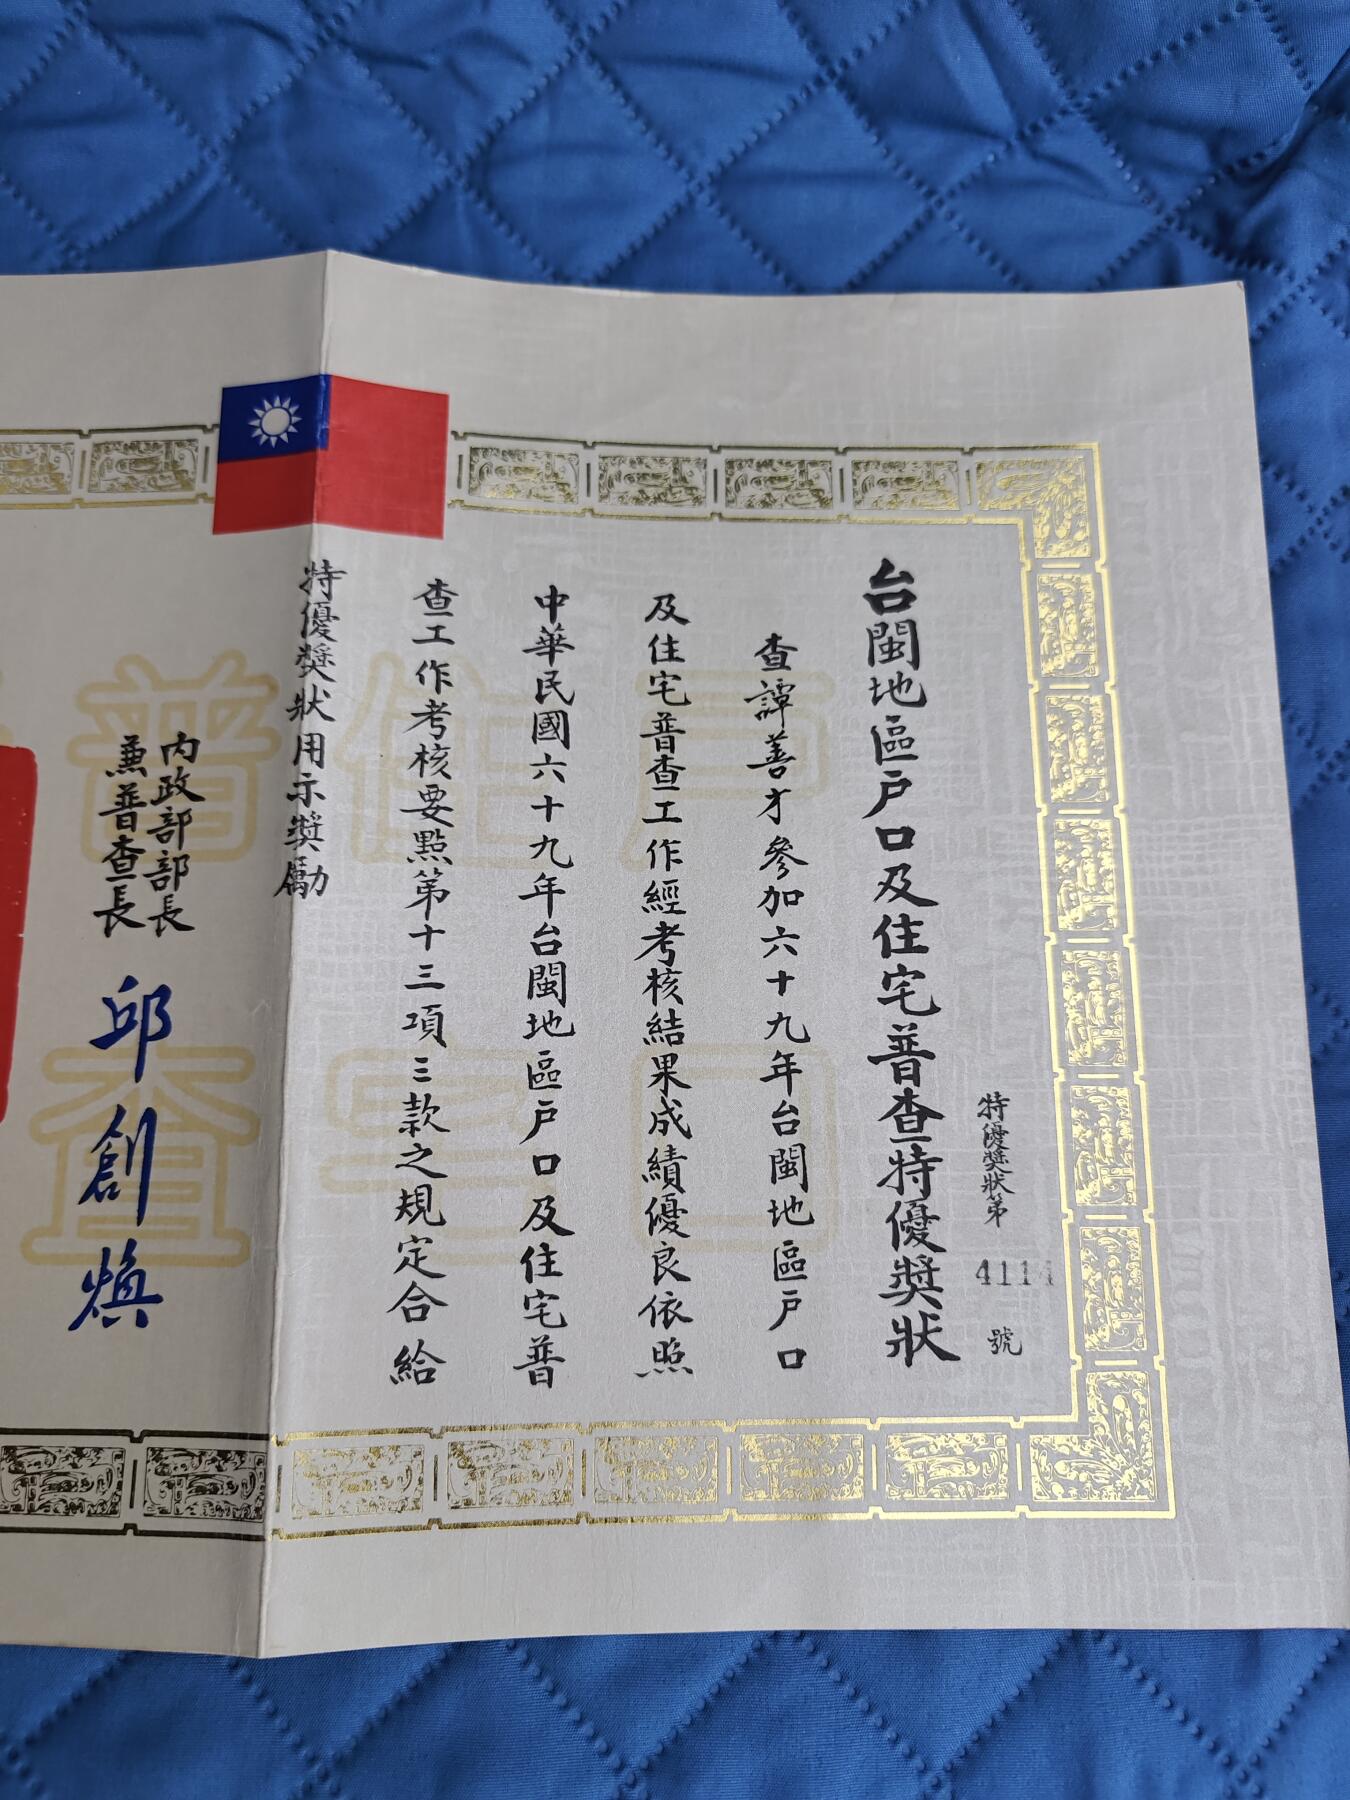 特優獎狀第 411 號
台閩地區戶口及住宅普查特優獎狀
查譚善才參加六十九年台閩地區戶口
及住宅普查工作經考核結果成績優良依照
中華民國六十九年台閩地區戶口及住宅普
查工作考核要點第十三項三款之規定合給
特優獎狀用示獎勵
內政部部長
兼普查長
邱創煥
戶口
住宅
普查